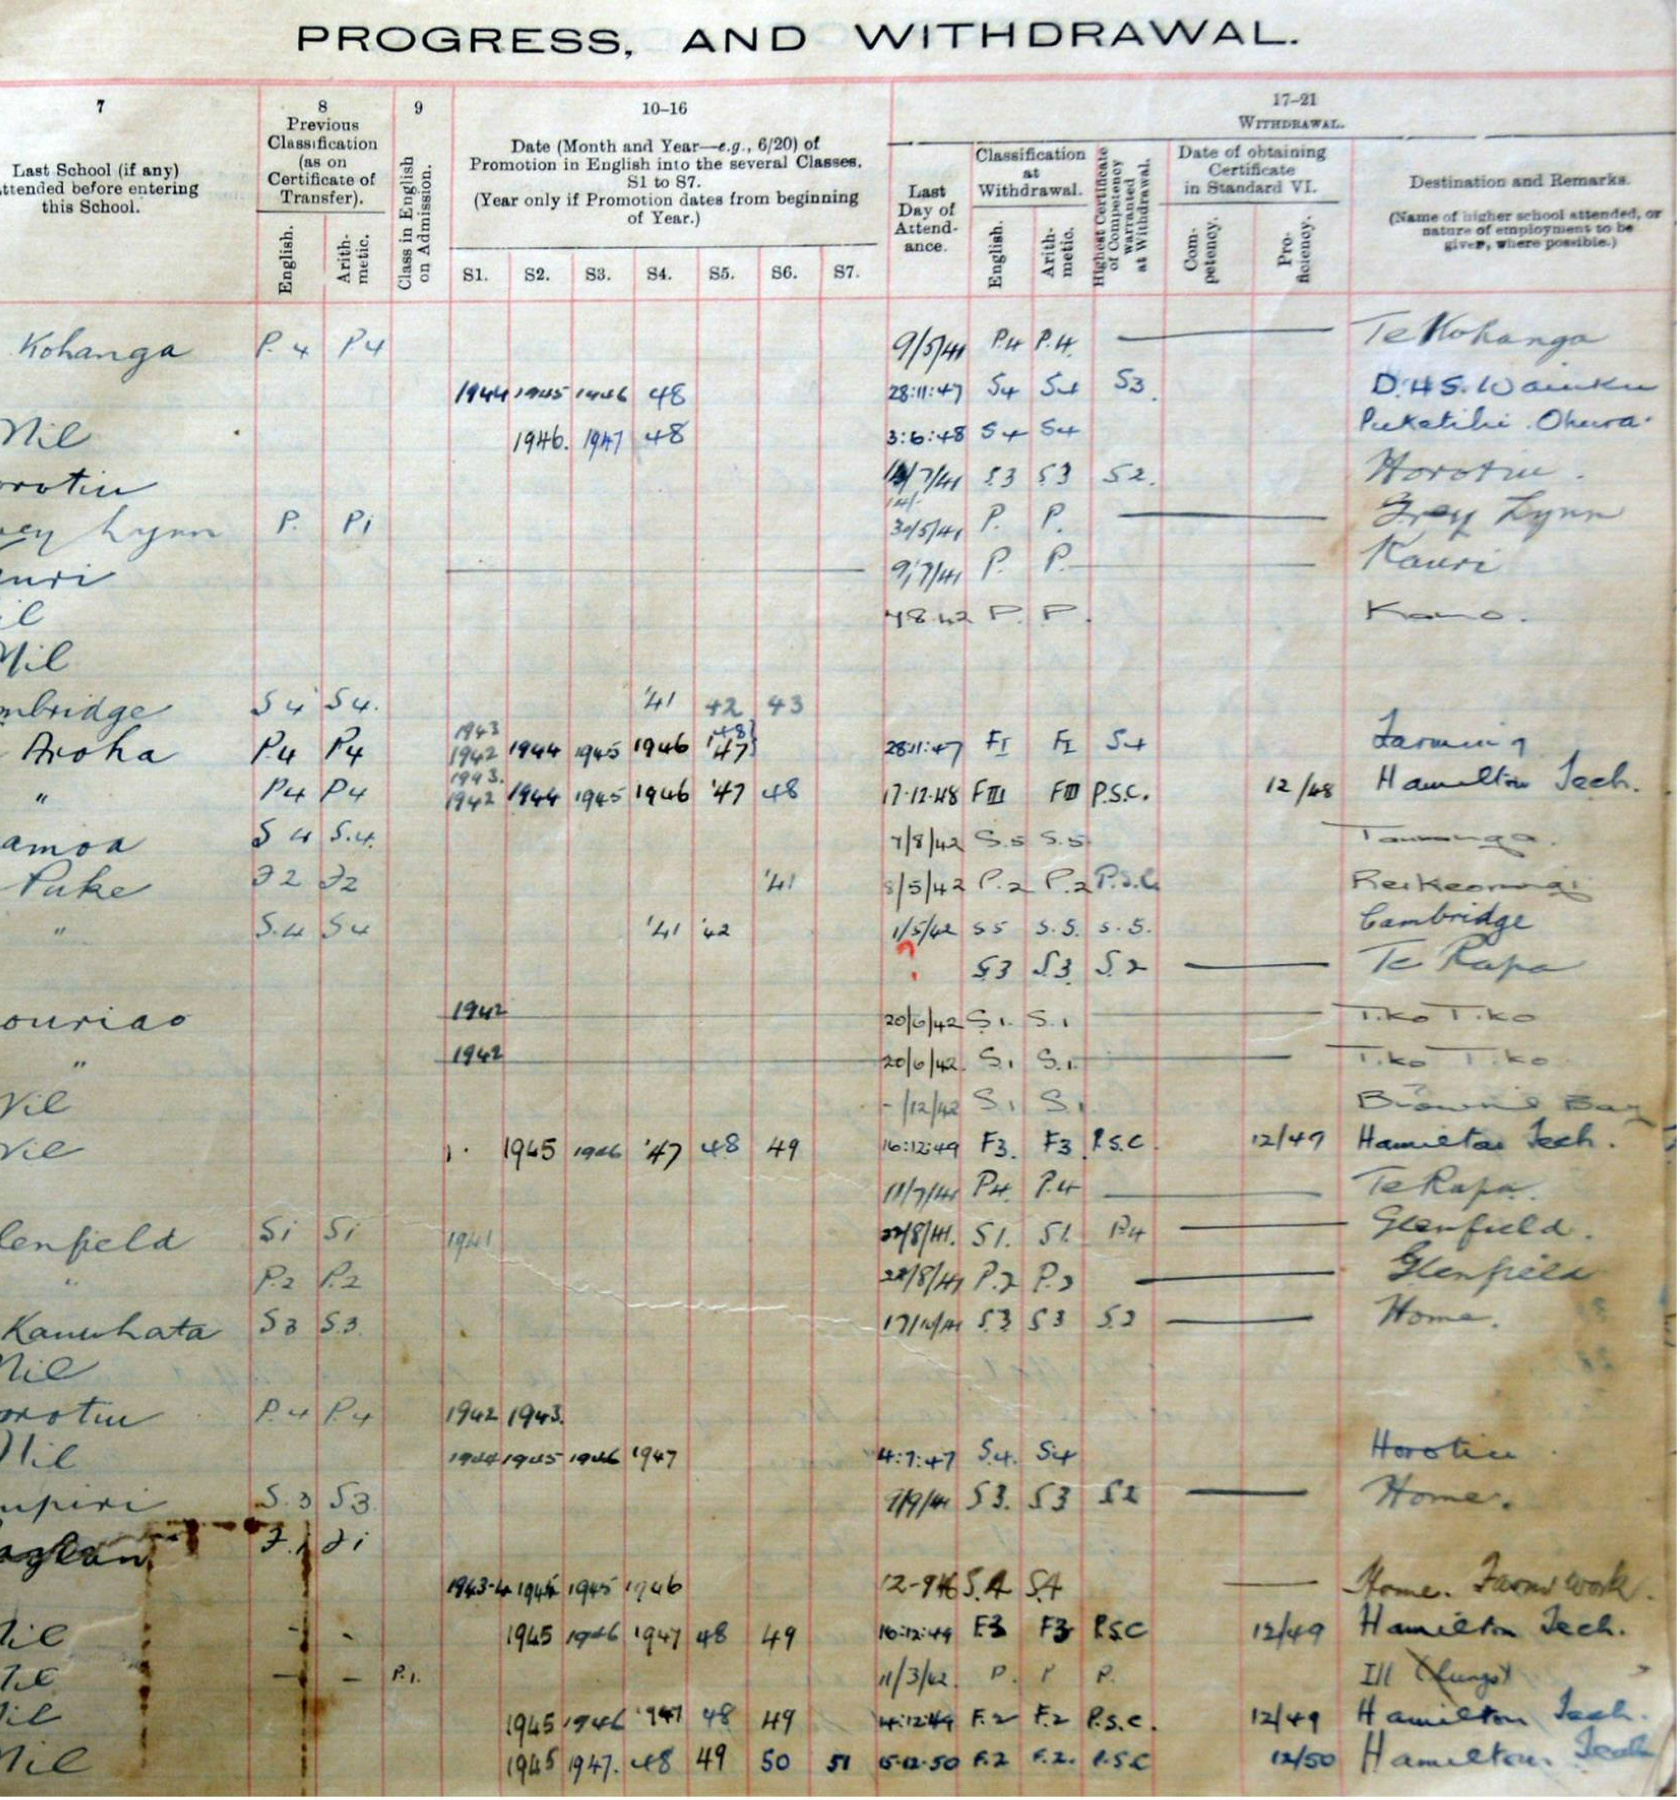 PROGRESS, AND WITHDRAWAL.
7 8 9 10–16 17–21
WITHDRAWAL.
Last School (if any) attended before entering this School.
Previous Classification (as on Certificate of Transfer).
English. Arithmetic.
Class in English on Admission.
Date (Month and Year—e.g., 6/20) of Promotion in English into the several Classes, S1 to S7.
(Year only if Promotion dates from beginning of Year.)
S1. S2. S3. S4. S5. S6. S7.
Last Day of Attendance.
Classification at Withdrawal.
English. Arithmetic.
Highest Certificate of Competency warranted at Withdrawal.
Date of obtaining Certificate in Standard VI.
Competency. Proficiency.
Destination and Remarks.
(Name of higher school attended, or nature of employment to be given, where possible.)
Kohanga P.4 P4 9/5/41 P.4 P.4. Te Kohanga
1944 1945 1946 48 28:11:47 S4 S4 S3. D.H.S. Waiuku
Nil 1946. 1947 48 3:6:48 S4 S4
orotiu /7/41 S3 S3 S2. Horotiu.
ey Lynn P. P1 30/5/41 P. P. Grey Lynn
uri 9/7/41 P. P. Kauri
il P. P.
Nil
mbridge S4 S4. '41 42 43
Aroha P.4 P4 1943 1942 1944 1945 1946 '47 48} 28:11:47 FI FI S4 Farming
" P4 P4 1943. 1942 1944 1945 1946 '47 48 17.12.48 FIII FIII P.S.C. 12/48 Hamilton Tech.
amoa S4 S.4. 7/8/42 S.5 S.5
Puke F2 F2 '41 8/5/42 P.2 P.2 P.S.C.
" S.4 S4 '41 '42 1/5/42 S5 S.5. S.5. Cambridge
? S3 S3 S.2 Te Rapa
ouriao 1942 20/6/42 S1. S.1 Tiko Tiko
" 1942 20/6/42. S.1 S.1. Tiko Tiko
Nil - /12/42 S.1 S.1 Browns Bay
Nil 1945 1946 '47 48 49 16:12:49 F3. F3 P.S.C. 12/49 Hamilton Tech.
11/7/41 P4. P.4 Te Rapa.
lenfield S1 S1 1941 22/8/41. S1. S1. P4 Glenfield.
" P.2 P.2 22/8/41 P.2 P.2 Glenfield
Kauwhata S3 S.3. S.3 S3 S.2 Home.
Nil
orotiu P.4 P.4 1942 1943.
Nil 1944 1945 1946 1947 4:7:47 S.4. S4 Horotiu
upiri S.3 S3. 9/9/41 S3. S3 S2 Home.
aglan F.1 F1
1943-4 1944 1945 1946 S.4 S4 Home. Farm work.
Nil - - 1945 1946 1947 48 49 16:12:49 F3 F3 P.S.C 12/49 Hamilton Tech.
Nil — — P.1. 11/3/42. P. P P. Ill (lungs)
Nil 1945 1946 1947 48 49 F.2 F.2 P.S.C. 12/49 Hamilton Tech.
Nil 1945 1947. 48 49 50 51 15.12.50 F.2 F.2. P.S.C 12/50 Hamilton. Tech